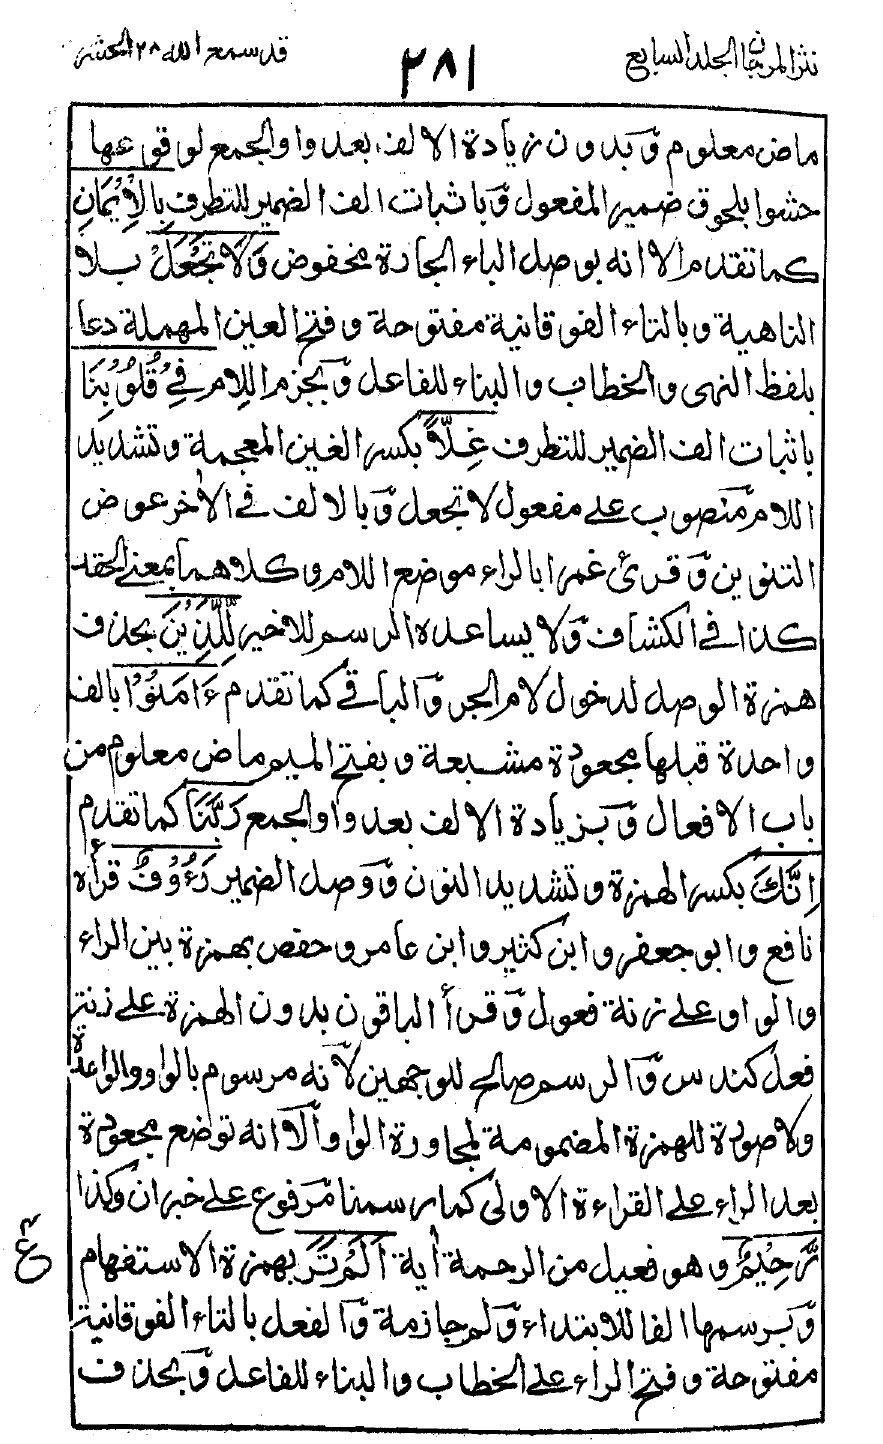 نثر المرجان الجلد السابع
٢٨١
قد سمع الله ٢٨ الحشر
ماض معلوم وَبدون زيادة الالف بعد واو الجمع لوقوعها
حشوا بلحوق ضمير المفعول وَباثبات الف الضمير للتطرف بِالْاِيْمَانِ
كما تقدم الا انه بوصل الباء الجارة مخفوض وَلَا تَجْعَلْ بلا
الناهية وبالتاء الفوقانية مفتوحة وفتح العين المهملة دعا
بلفظ النهى والخطاب والبناء للفاعل وَبجزم اللام فِيْ قُلُوْبِنَا
باثبات الف الضمير للتطرف غِلًّا بكسر الغين المعجمة وتشديد
اللام منصوب على مفعول لا تجعل وَبالالف في الاٰخر عوض
التنوين وَقرئ غمرا بالراء موضع اللام وكلاهما بمعنى الحقد
كذا في الكشاف وَلا يساعده الرسم للاخير لِّلَّذِيْنَ بحذف
همزة الوصل لدخول لام الجر وَالباقي كما تقدم ءَامَنُوْا بالف
واحدة قبلها مجعودة مشبعة وبفتح الميم ماض معلوم من
باب الافعال وَبزيادة الالف بعد واو الجمع رَبَّنَا كما تقدم
اِنَّكَ بكسر الهمزة وتشديد النون وَوصل الضمير رَءُوْفٌ قرأه
نافع وابو جعفر وابن كثير وابن عامر وحفص بهمزة بين الراء
والواو على زنة فعول وَقرأ الباقون بدون الهمزة على زنة
فعل كندس وَالرسم صالح للوجهين لاَنه مرسوم بالواو الواحدة
ولا صورة للهمزة المضمومة لمجاورة الواو اَلا انه توضع مجعودة
بعد الراء على القراءة الاولى كما رسمنا مرفوع على خبر ان وكذا
رَّحِيْمٌ وهو فعيل من الرحمة اٰية اَلَمْ تَرَ بهمزة الاستفهام
وَبرسمها الفا للابتداء وَلم جازمة وَالفعل بالتاء الفوقانية
مفتوحة وفتح الراء على الخطاب والبناء للفاعل وَبحذف
ع